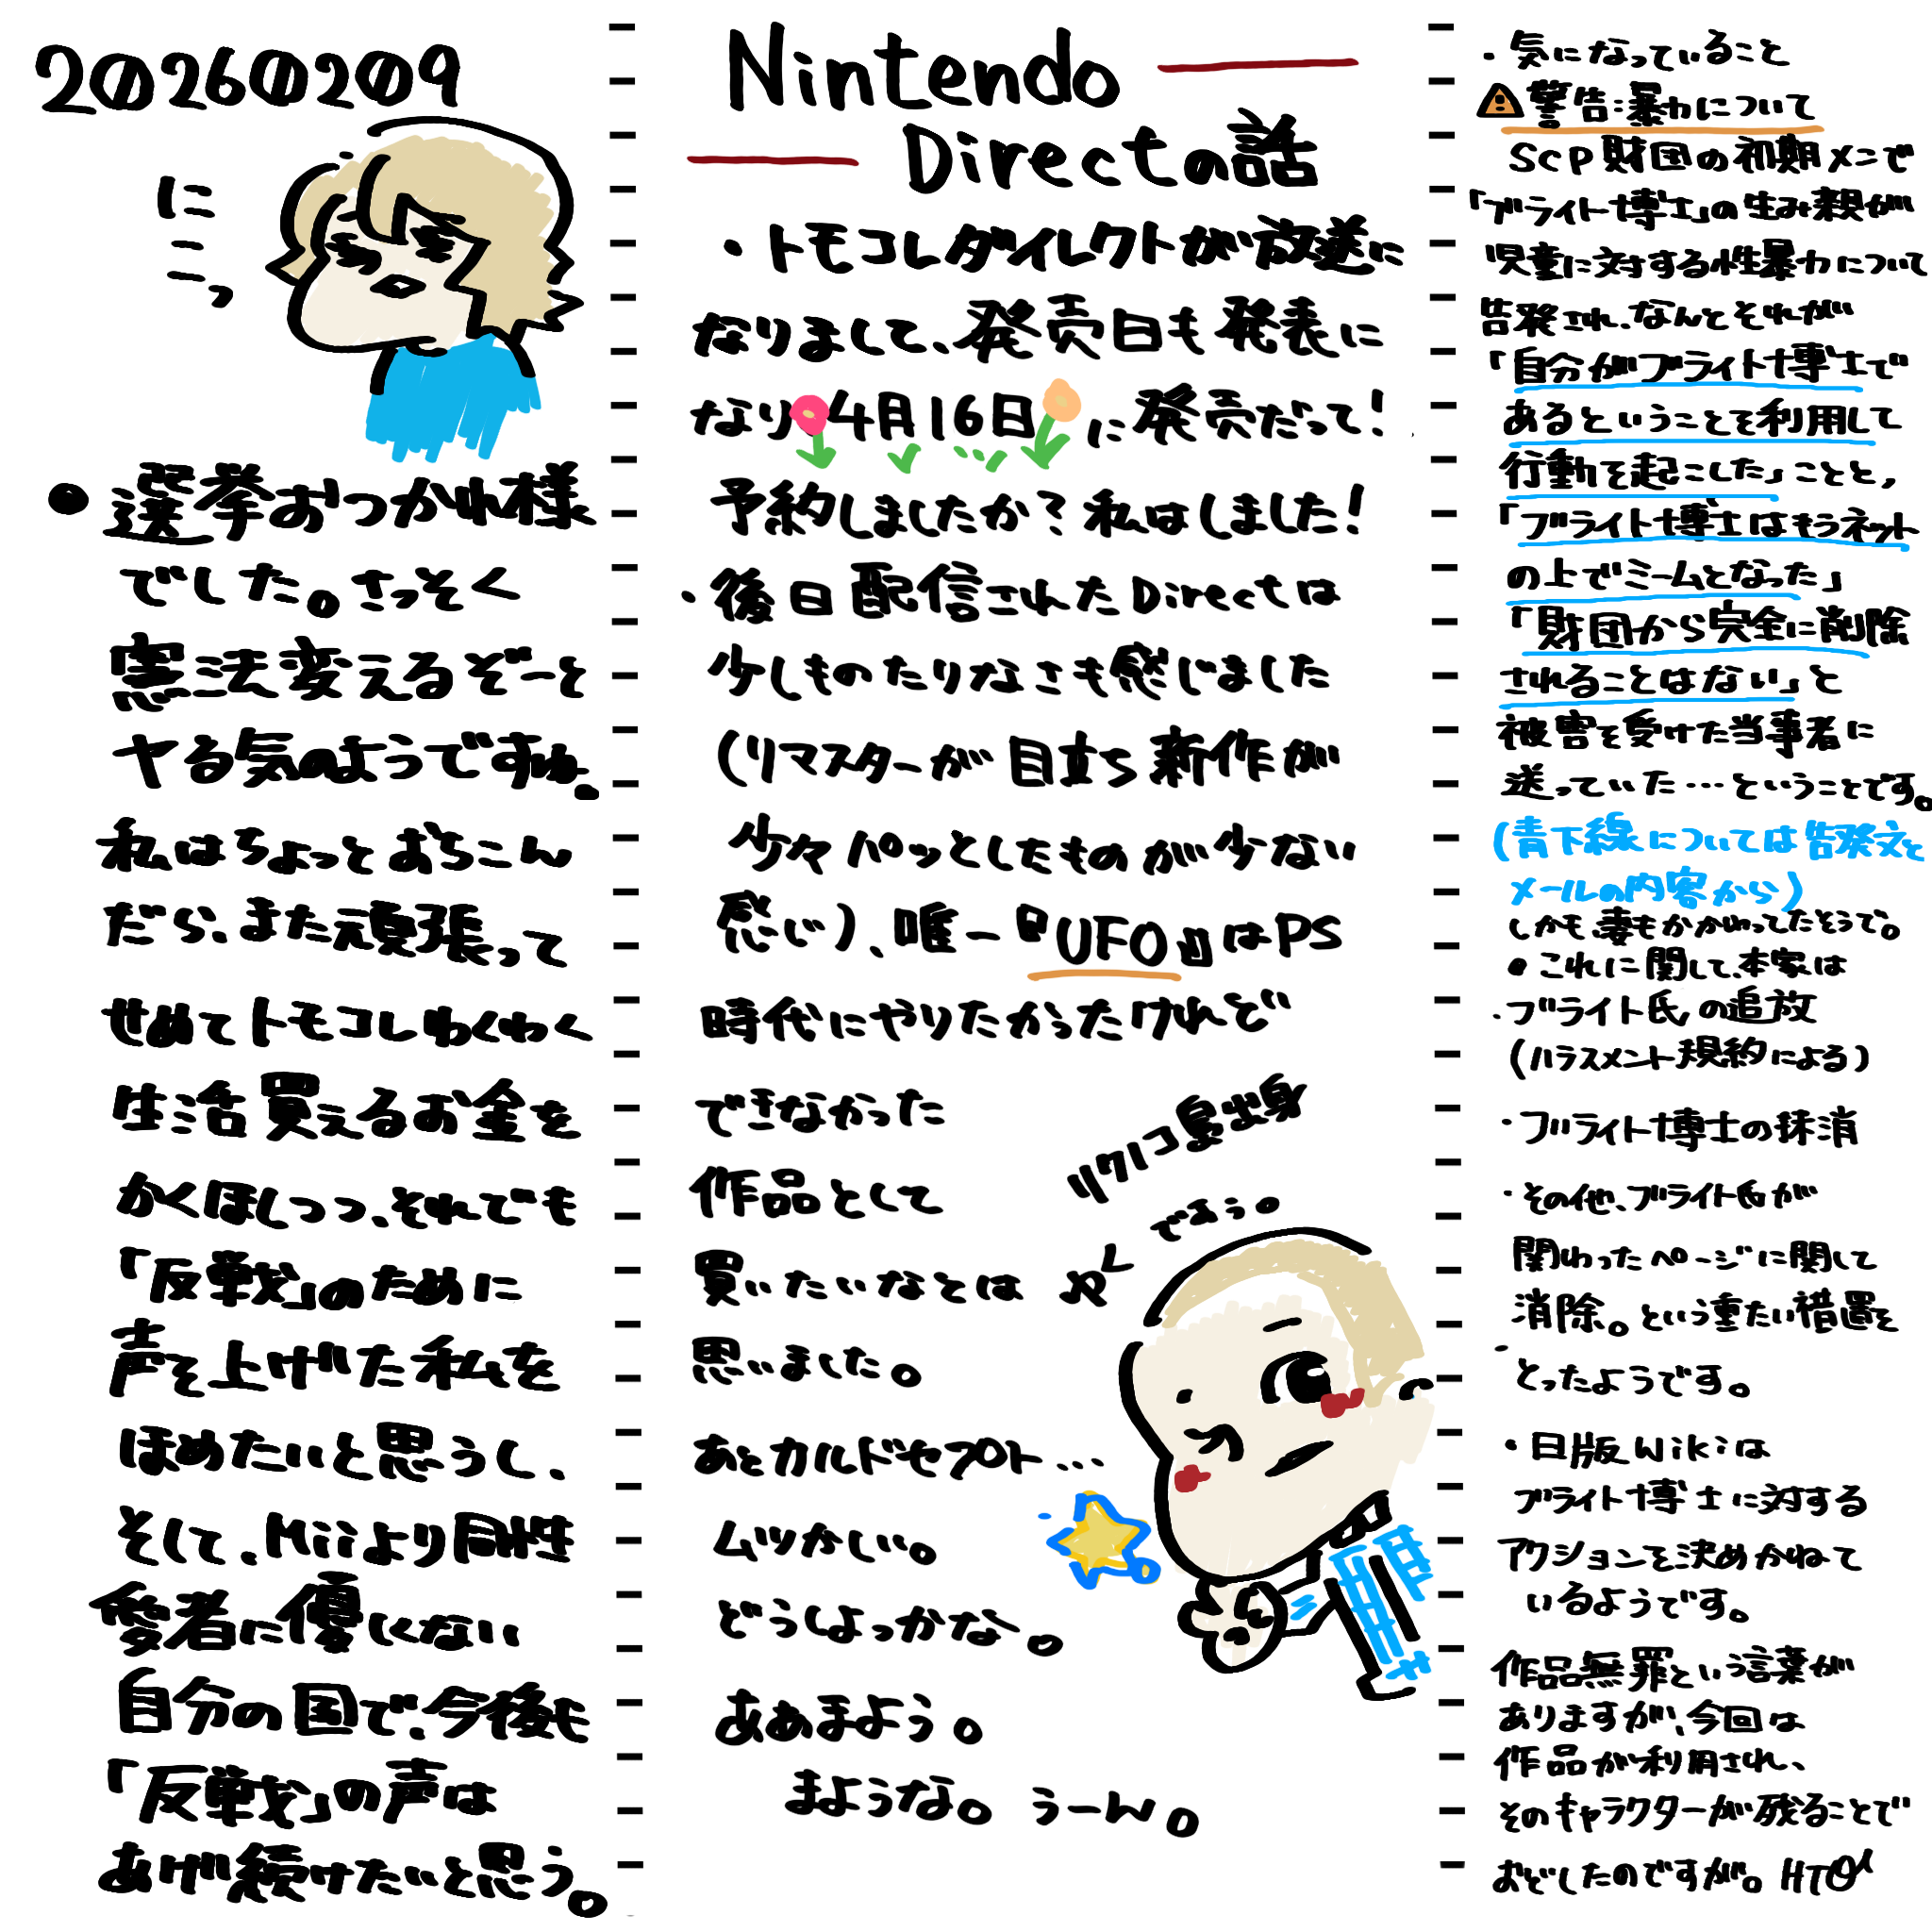 20260209
にこにこっ
●選挙おつかれ様
でした。さっそく
憲法変えるぞーと
ヤる気のようですね。
私はちょっとおちこん
だら、また頑張って
せめてトモコレわくわく
生活買えるお金を
かくほしつつ、それでも
「反戦」のために
声を上げた私を
ほめたいと思うし、
そして、Miiより同性
愛者に優しくない
自分の国で、今後も
「反戦」の声は
あげ続けたいと思う。
Nintendo
Directの話
・トモコレダイレクトが放送に
なりまして、発売日も発表に
なり4月16日に発売だって!
予約しましたか?私はしました!
・後日配信されたDirectは
少しものたりなさも感じました
(リマスターが目立ち新作が
少々パッとしたものが少ない
感じ)、唯一『UFO』はPS
時代にやりたかったけれど
できなかった
作品として
買いたいなとは
思いました。
あとカルドセプト…
ムツかしい。
どうしよっかな。
ああまよう。
まような。うーん。
島出身
でぇぅ。
・気になっていること
警告:暴力について
SCP財団の初期メンで
「ブライト博士」の生み親が
児童に対する性暴力について
告発され、なんとそれが
「自分がブライト博士で
あるということを利用して
行動を起こした」ことと,
「ブライト博士はもうネット
の上でミームとなった」
「財団から完全に削除
されることはない」と
被害を受けた当事者に
送っていた…ということです。
(青下線については告発文と
メールの内容から)
しかも、妻もかかわってたそうで。
●これに関して、本家は
・ブライト氏の追放
(ハラスメント規約による)
・ブライト博士の抹消
・その他、ブライト氏が
関わったページに関して
消除。という重たい措置を
とったようです。
・日版Wikiは
ブライト博士に対する
アクションを決めかねて
いるようです。
作品無罪という言葉が
ありますが、今回は
作品が利用され、
そのキャラクターが残ることで
おどしたのですが。